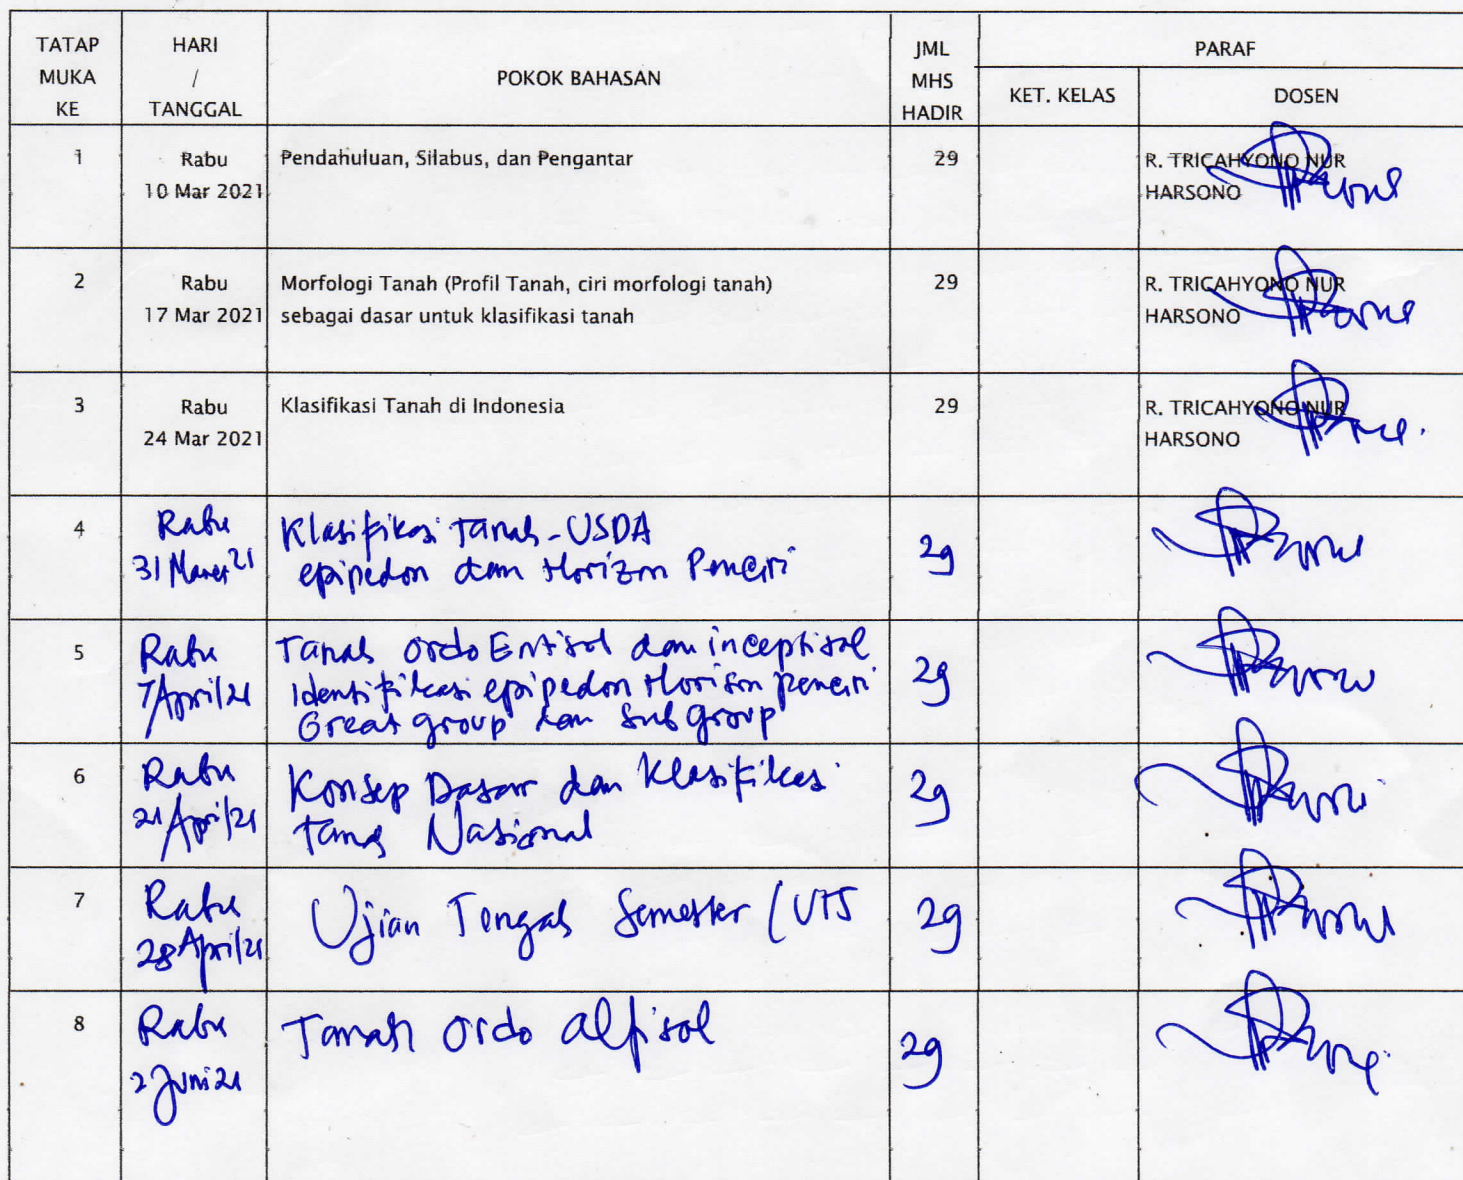 TATAP MUKA KE
HARI / TANGGAL
POKOK BAHASAN
JML MHS HADIR
PARAF
KET. KELAS
DOSEN
1
Rabu
10 Mar 2021
Pendahuluan, Silabus, dan Pengantar
29
R. TRICAHYONO NUR
HARSONO
2
Rabu
17 Mar 2021
Morfologi Tanah (Profil Tanah, ciri morfologi tanah)
sebagai dasar untuk klasifikasi tanah
29
R. TRICAHYONO NUR
HARSONO
3
Rabu
24 Mar 2021
Klasifikasi Tanah di Indonesia
29
R. TRICAHYONO NUR
HARSONO
4
Rabu
31 Maret 21
Klasifikasi Tanah - USDA
epipedon dan Horizon Penciri
29
5
Rabu
7 April/21
Tanah Ordo Entisol dan inceptisol
Identifikasi epipedon Horison penciri
Great group dan Sub group
29
6
Rabu
21 April/21
Konsep Dasar dan Klasifikasi
tanah Nasional
29
7
Rabu
28 April/21
Ujian Tengah Semester (UTS
29
8
Rabu
2 Juni 21
Tanah Ordo Alfisol
29